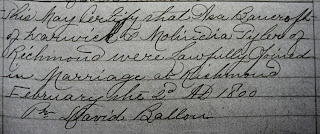 This May Certify that Asa Bancroft
of Warwick & Tyler of
Richmond were Lawfully Joined
in Marriage at Richmond
February the 2d AD 1800
Pr David Ballou